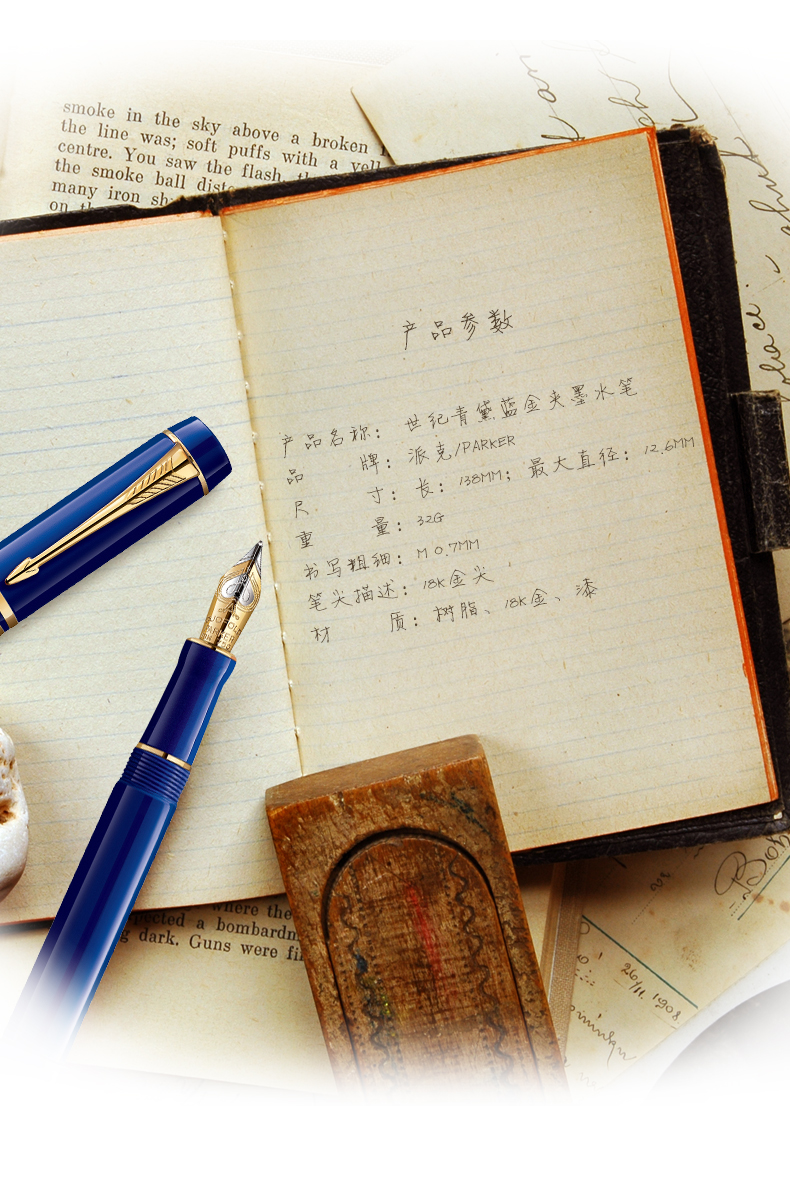 smoke in the sky above a broken
the line was; soft puffs with a yell
centre. You saw the flash, th
the smoke ball dist
many iron sh
on th
产品参数
产品名称：世纪青黛蓝金夹墨水笔
品 牌：派克/PARKER
尺 寸：长：138MM；最大直径：12.6MM
重 量：32G
书写粗细：M 0.7MM
笔尖描述：18K金尖
材 质：树脂、18K金、漆
PARKER
where the
pected a bombardm
g dark. Guns were fi
26/11. 1908